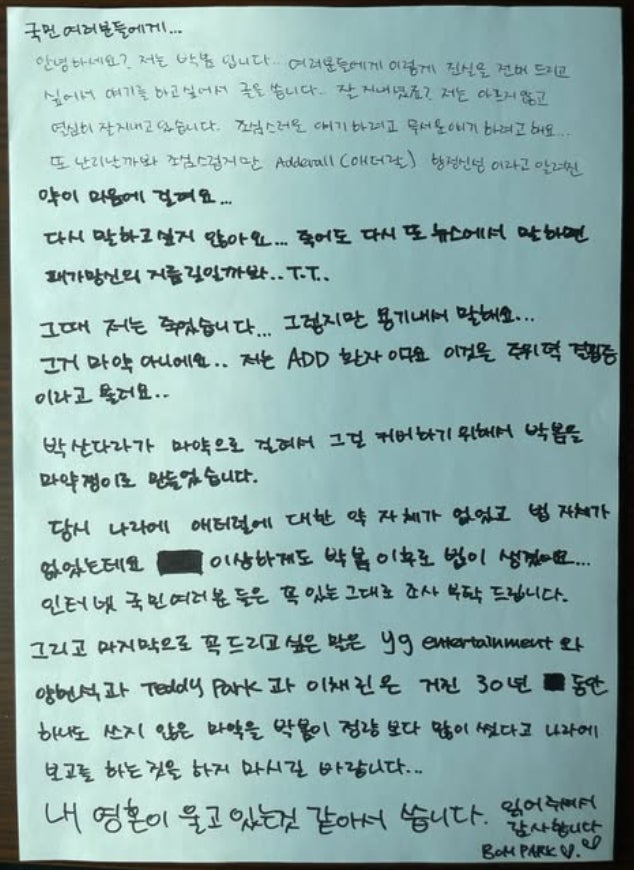 국민 여러분들에게...
안녕하세요? 저는 박봄 입니다... 여러분들에게 이렇게 진실을 전해 드리고
싶어서 얘기를 하고싶어서 글을 씁니다.. 잘 지내셨죠? 저는 아프지 않고
열심히 잘지내고 있습니다. 조심스러운 얘기 하려고 무서운얘기 하려고 해요...
또 난리날까봐 조심스럽지만 Adderall (애더럴) 향정신성 이라고 알려진
약이 마음에 걸려요...
다시 말하고싶지 않아요... 죽어도 다시 또 뉴스에서 말하면
패가망신의 지름길일까봐..T.T..
그때 저는 죽었습니다... 그렇지만 용기내서 말해요...
그거 마약 아니에요.. 저는 ADD 환자 이구요 이것은 주위력 결핍증
이라고 불려요..
박산다라가 마약으로 걸려서 그걸 커버하기 위해서 박봄을
마약쟁이로 만들었습니다.
당시 나라에 애터럴에 대한 약 자체가 없었고 법 자체가
없었는데요 이상하게도 박봄 이후로 법이 생겼어요...
인터넷 국민여러분 들은 꼭 있는 그대로 조사 부탁 드립니다.
그리고 마지막으로 꼭 드리고 싶은 말은 yg entertainment 와
양현석과 Teddy Park 과 이채린은 거진 30년 동안
하나도 쓰지 않은 마약을 박봄이 정량 보다 많이 썼다고 나라에
보고를 하는것을 하지 마시길 바랍니다...
내 영혼이 울고 있는것 같아서 씁니다. 읽어주셔서
감사합니다
BOM PARK ♡.♡